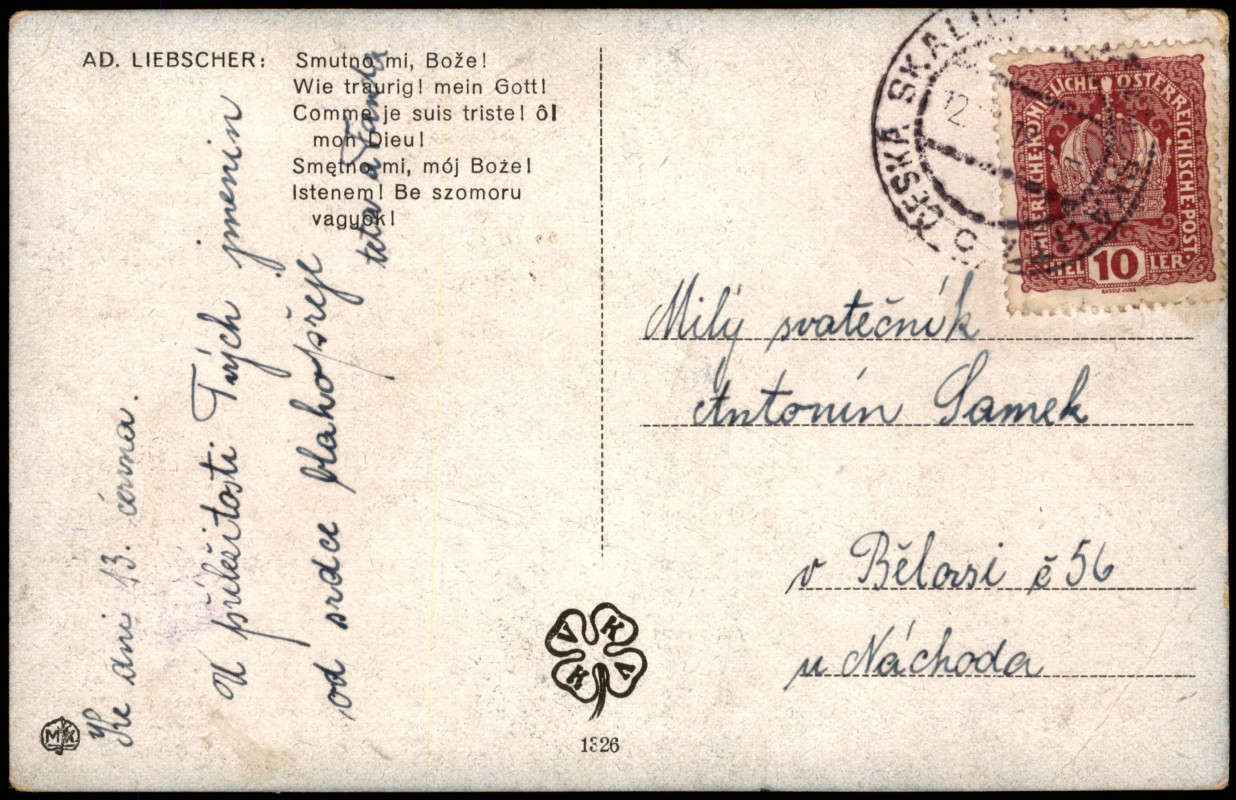 AD. LIEBSCHER: Smutno mi, Bože!
Wie traurig! mein Gott!
Comme je suis triste! ôl
mon Dieu!
Smętno mi, mój Boże!
Istenem! Be szomoru
vagyok!
Ke dni 13. června.
U příležitosti Tvých jmenin
od srdce blahopřeje
teta Fanda
ČESKÁ SKALICE
12.
KAISERLICHE·KÖNIGLICHE ÖSTERREICHISCHE·POST·
HELLER
10
Milý svatečník
Antonín Samek
v Bělovsi č 56
u Náchoda
V K K V
MK
1326